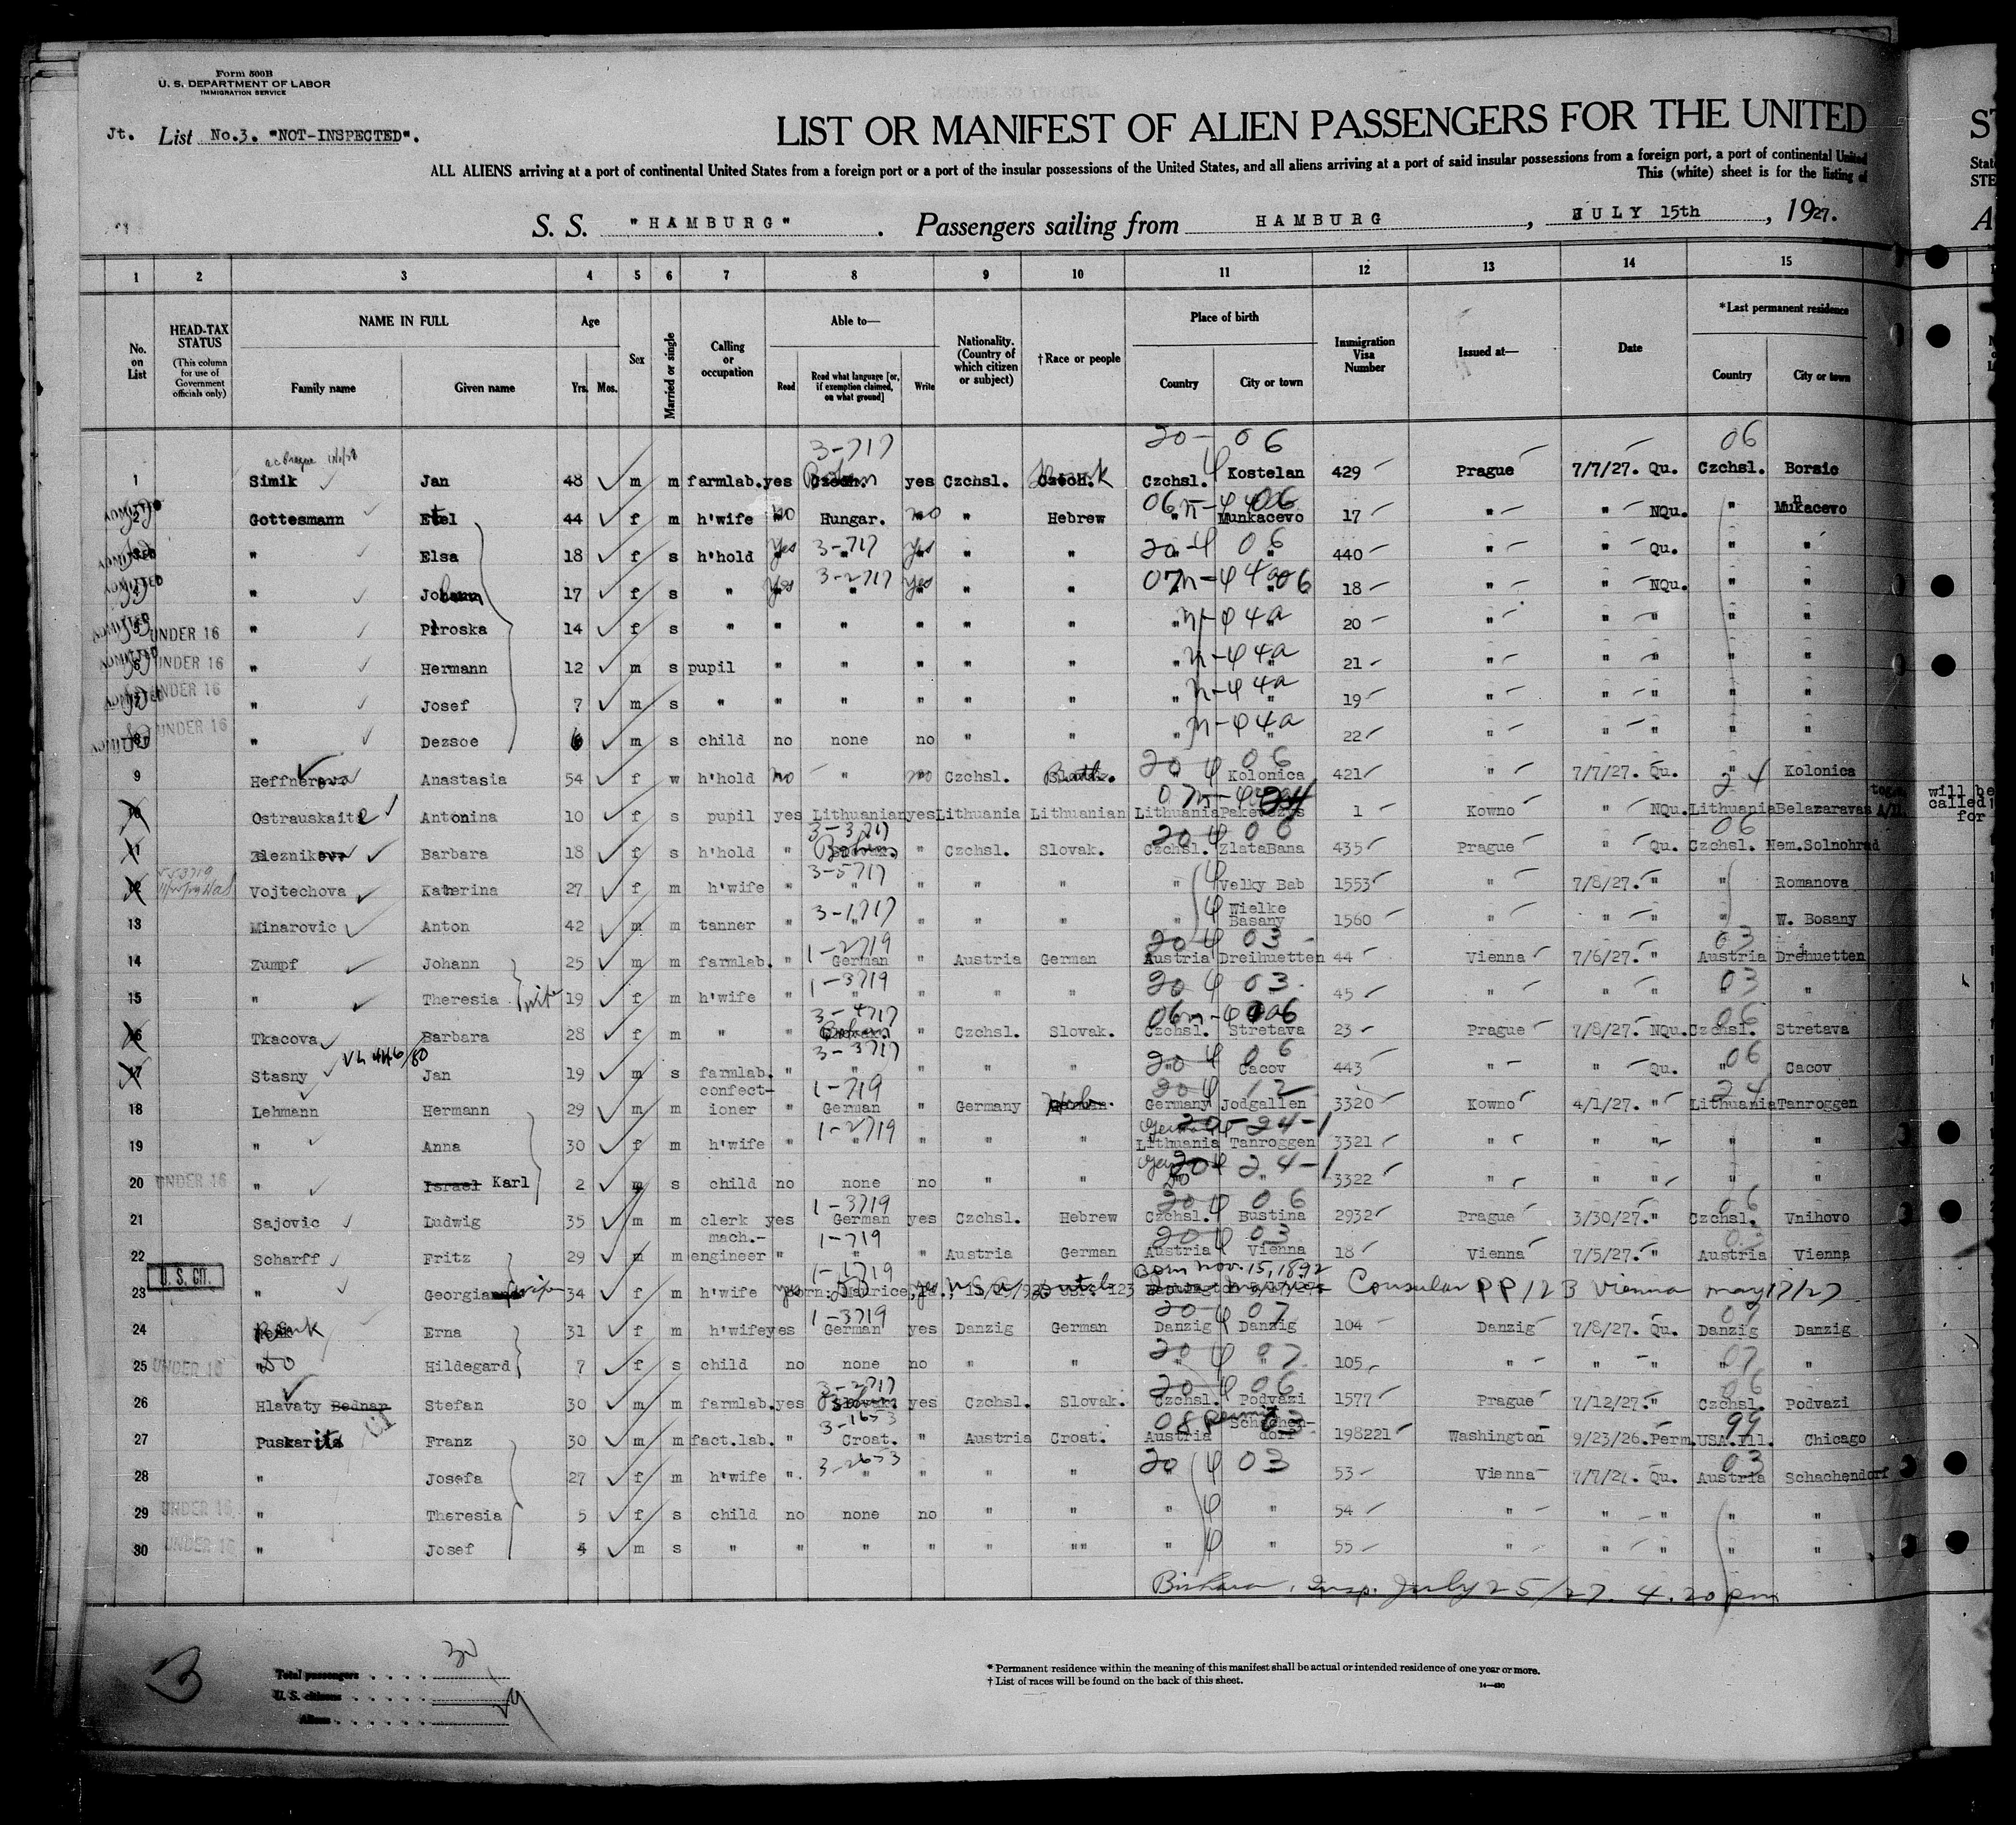 Form 500B
U. S. DEPARTMENT OF LABOR
IMMIGRATION SERVICE
Jt. List No.3. "NOT-INSPECTED".
LIST OR MANIFEST OF ALIEN PASSENGERS FOR THE UNITED
ALL ALIENS arriving at a port of continental United States from a foreign port or a port of the insular possessions of the United States, and all aliens arriving at a port of said insular possessions from a foreign port, a port of continental United
This (white) sheet is for the listing of
S. S. "HAMBURG". Passengers sailing from HAMBURG, JULY 15th, 1927.
1 2 3 4 5 6 7 8 9 10 11 12 13 14 15
No. on List
HEAD-TAX STATUS (This column for use of Government officials only)
NAME IN FULL Family name Given name
Age Yrs. Mos.
Sex
Married or single
Calling or occupation
Able to— Read Read what language [or, if exemption claimed, on what ground] Write
Nationality. (Country of which citizen or subject)
†Race or people
Place of birth Country City or town
Immigration Visa Number
Issued at—
Date
*Last permanent residence Country City or town
3-717 20- 06 06
1 Simik Jan 48 m m farmlab. yes Czech. yes Czchsl. Czech. Czchsl. Kostelan 429 Prague 7/7/27. Qu. Czchsl. Borsic
ADMITTED 2 Gottesmann Etel 44 f m h'wife no Hungar. no " Hebrew " Munkacevo 17 " " NQu. " Munkacevo
ADMITTED 3 " Elsa 18 f s h'hold yes 3-717 " yes " " 20 06 440 " " Qu. " "
ADMITTED 4 " Johann 17 f s " yes 3-2717 " yes " " 07n-44a 06 18 " " NQu. " "
ADMITTED 5 UNDER 16 " Piroska 14 f s " " " " " " " n-44a 20 " " " " "
ADMITTED 6 UNDER 16 " Hermann 12 m s pupil " " " " " " n-44a 21 " " " " "
ADMITTED 7 UNDER 16 " Josef 7 m s " " " " " " " n-44a 19 " " " " "
ADMITTED 8 UNDER 16 " Dezsoe 6 m s child no none no " " " n-44a 22 " " " " "
9 Heffnerova Anastasia 54 f w h'hold no " no Czchsl. " Kolonica 421 " 7/7/27. Qu. " Kolonica
10 Ostrauskaite Antonina 10 f s pupil yes Lithuanian yes Lithuania Lithuanian Lithuania 1 Kowno " NQu. Lithuania Belazaravas
will be called for
11 Barbara 18 f s h'hold " 3-3717 " Czchsl. Slovak. Czchsl. ZlataBana 435 Prague " Qu. Czchsl. Nem.Solnohrad
12 Vojtechova Katherina 27 f m h'wife " 3-5717 " " " " " Velky Bab 1553 " 7/8/27. " " Romanova
13 Minarovic Anton 42 m m tanner " 3-1717 " " " " " Wielke Basany 1560 " " " " W. Bosany
14 Zumpf Johann 25 m m farmlab. " 1-2719 German " Austria German Austria Dreihuetten 44 Vienna 7/6/27. " Austria Dreihuetten
15 " Theresia wife 19 f m h'wife " 1-3719 " " " " 20 03 45 " " " 03 "
16 Tkacova Barbara 28 f m " " 3-4717 " Czchsl. Slovak. Czchsl. Stretava 23 Prague 7/8/27. NQu. Czchsl. Stretava
17 Stasny Jan 19 m s farmlab. " 3-3717 " " " " " Cacov 443 " " Qu. " Cacov
18 Lehmann Hermann 29 m m confect-ioner " 1-719 German " Germany Germany Jodgallen 3320 Kowno 4/1/27. " Lithuania Tanroggen
19 " Anna 30 f m h'wife " 1-2719 " " " " Lithuania Tanroggen 3321 " " " " "
20 UNDER 16 " Israel Karl 2 m s child no none no " " " 3322 " " " " "
21 Sajovic Ludwig 35 m m clerk yes 1-3719 German yes Czchsl. Hebrew Czchsl. Bustina 2932 Prague 3/30/27. " Czchsl. Vnihovo
22 Scharff Fritz 29 m m mach.-engineer " 1-719 " " Austria German Austria Vienna 18 Vienna 7/5/27. " Austria Vienna
U. S. CIT.
23 " Georgiana wife 34 f m h'wife yes 1-1719 Born Nov. 15, 1892 Consular PP 123 Vienna May 17/27
24 Erna 31 f m h'wife yes 1-3719 German yes Danzig German Danzig Danzig 104 Danzig 7/8/27. Qu. Danzig Danzig
25 UNDER 16 " Hildegard 7 f s child no none no " " " " 105 " " " " "
26 Hlavaty Bednar Stefan 30 m m farmlab. yes 3-2717 Slovak. yes Czchsl. Slovak. Czchsl. Podvazi 1577 Prague 7/12/27. " Czchsl. Podvazi
27 Puskarits Franz 30 m m fact.lab. " 3-1653 Croat. " Austria Croat. Austria Schachen-dorf 198221 Washington 9/23/26. Perm. USA.Ill. Chicago
28 " Josefa 27 f m h'wife " 3-2653 " " " " 20 03 53 Vienna 7/7/27. Qu. Austria Schachendorf
29 UNDER 16 " Theresia 5 f s child no none no " " " " 54 " " " " "
30 UNDER 16 " Josef 4 m s " " " " " "" " " 55 " " " " "
Insp. July 25/27. 4.20 pm
3
Total passengers 30
U. S. citizens 1
Aliens 29
* Permanent residence within the meaning of this manifest shall be actual or intended residence of one year or more.
† List of races will be found on the back of this sheet.
14—430